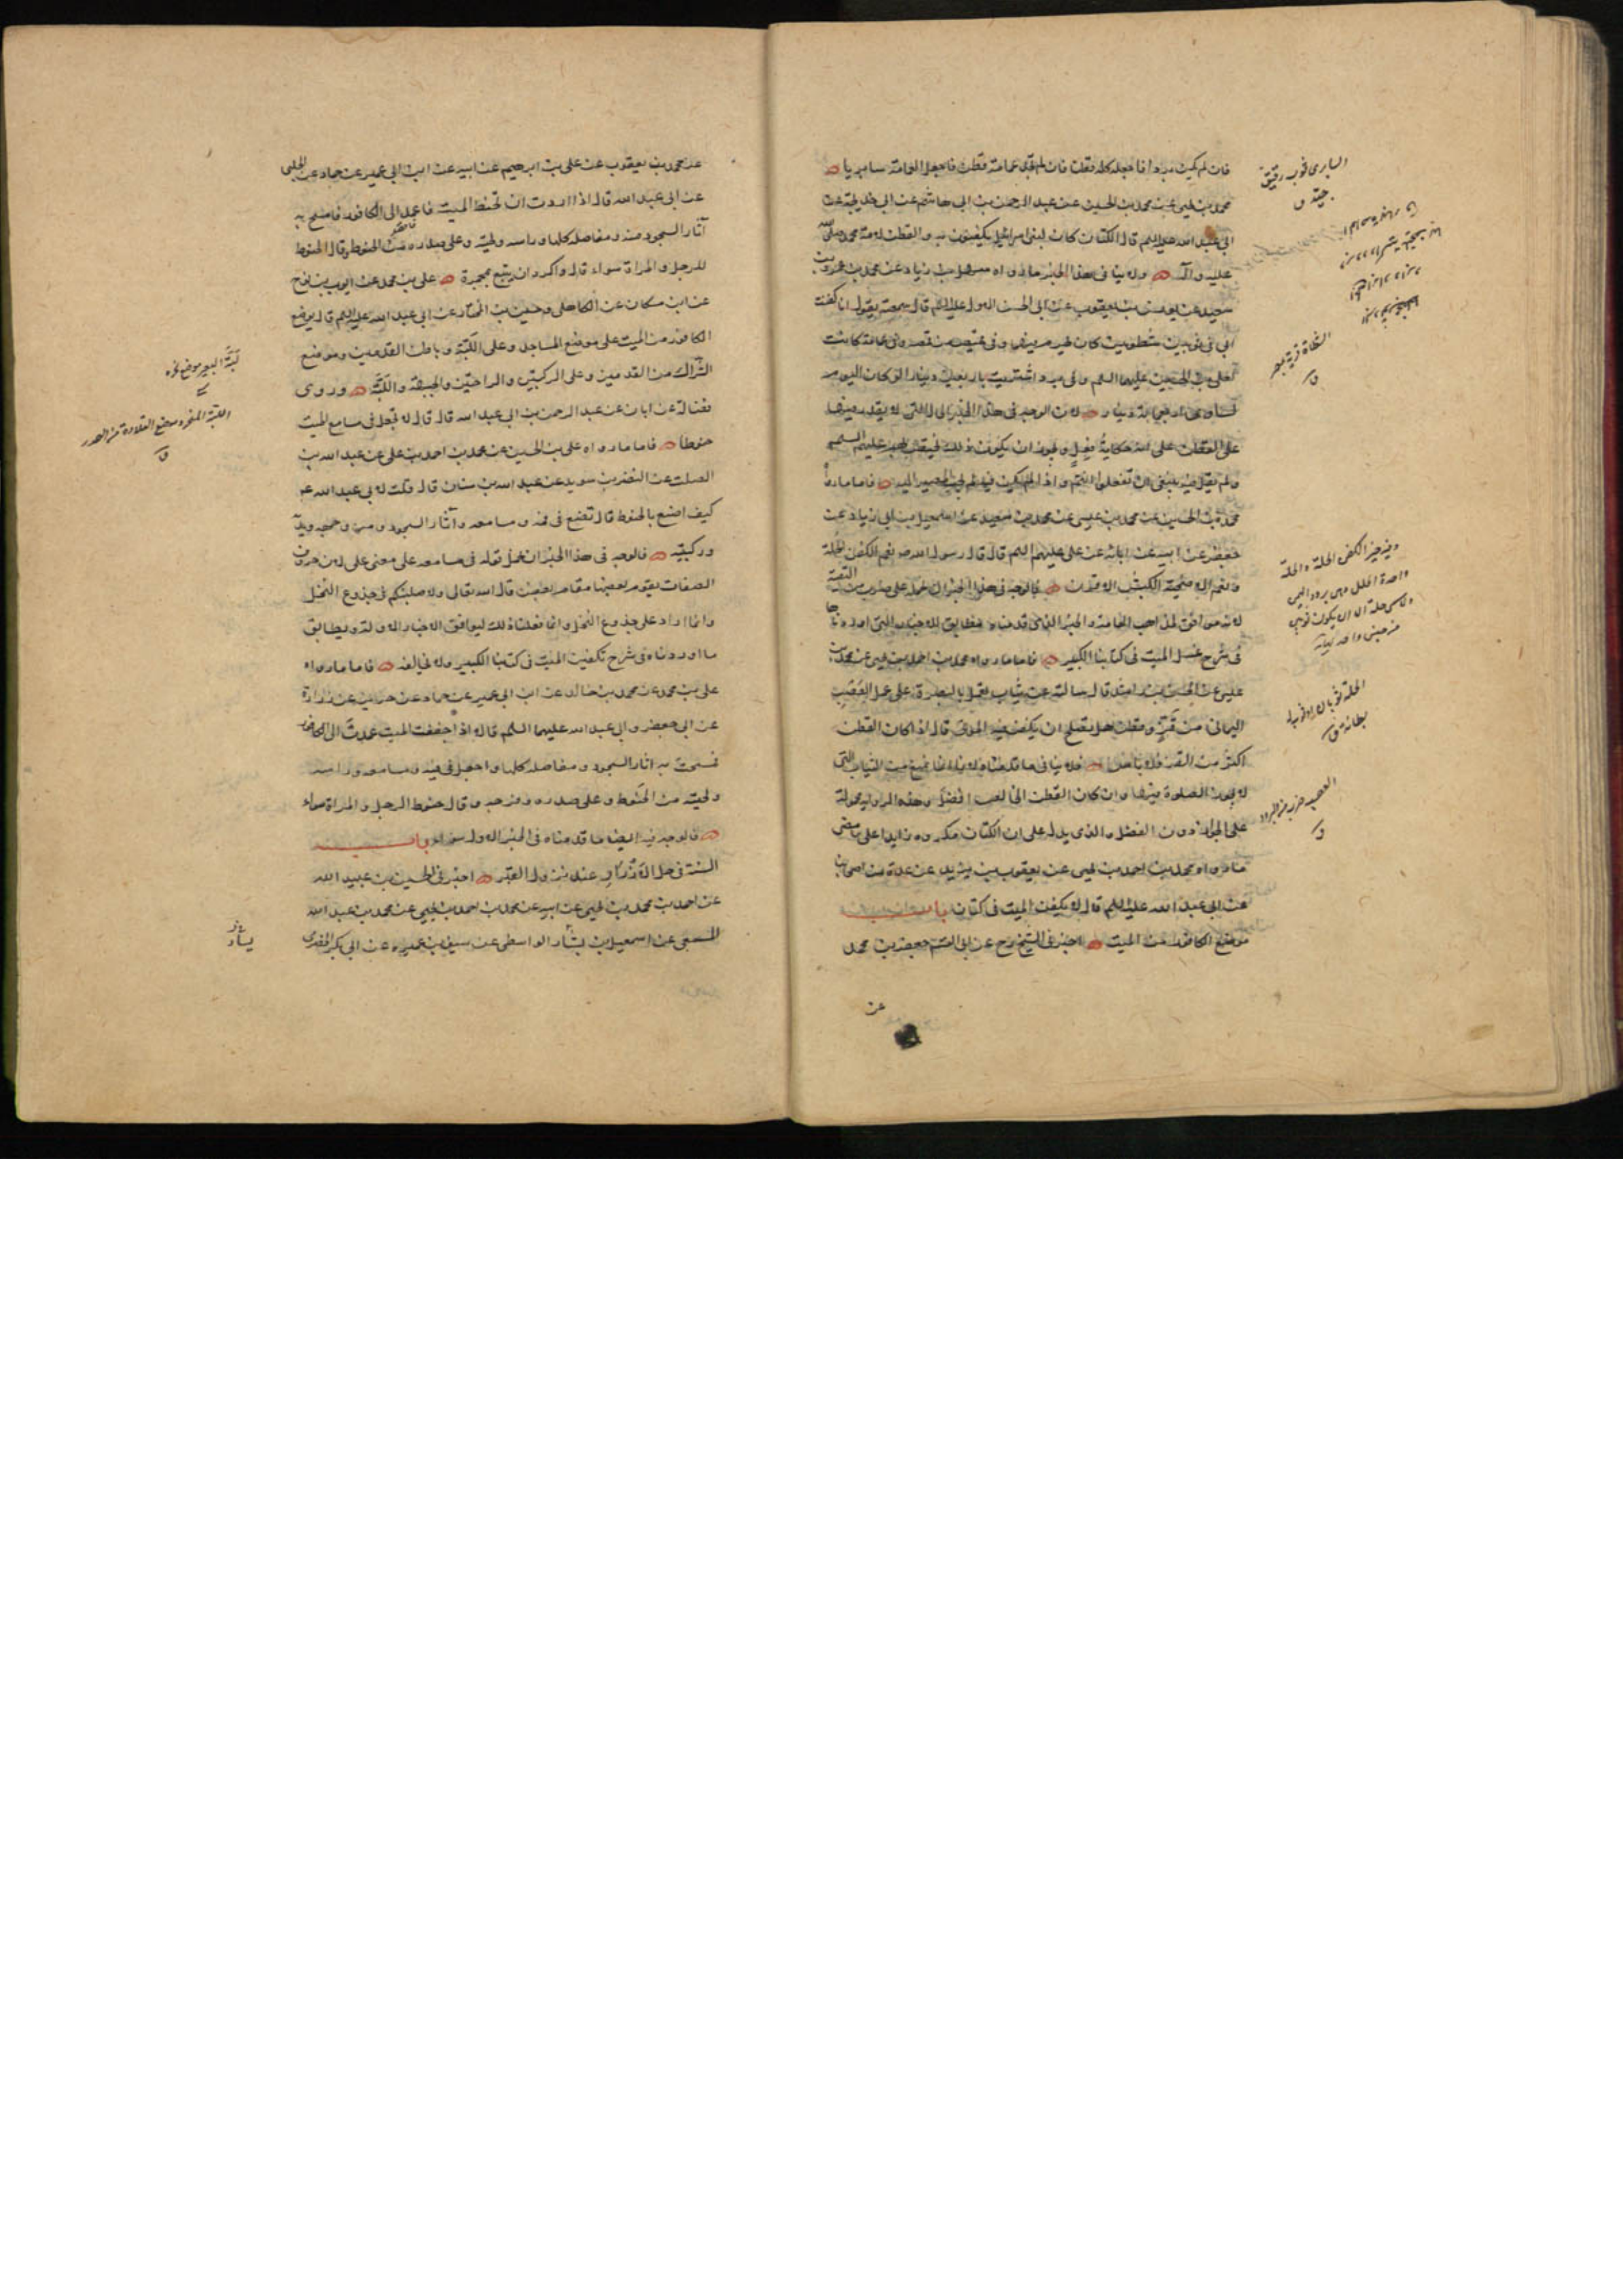 فان لم يكن برد افاجعله كله قطنا فان لم تجد عمامة قطن فاجعل العمامة سابريا
محمد بن يحيى عن محمد بن الحسين عن عبد الرحمن بن ابى هاشم عن ابى خديجة عن
ابى عبد الله عليه السلم قال الكتان كان لبنى اسرائيل يكفنون به والقطن لامة محمد صلى الله
عليه وآله ولا ينافى هذا الخبر ما رواه سهل بن زياد عن محمد بن عمرو بن
سعيد عن يونس بن يعقوب عن ابى الحسن الاول عليه السلم قال سمعته يقول انا كفنت
ابى فى ثوبين شطويين كان يحرم فيهما وفى قميص من قمصه وفى عمامة كانت
لعلى بن الحسين عليهما السلم وفى برد اشتريت باربعين دينارا لو كان اليوم
لساوى اربعمائة دينار لان الوجه فى هذا الخبر الحال التى لا يقدر فيها
على القطن على انه حكاية فعل ويجوز ان يكون ذلك يختص بهم عليهم السلم
ولم يقل فيه ينبغى ان تفعلوا انتم واذا لم يكن فيه لم يجب المصير اليه فاما ما رواه
محمد بن الحسين عن محمد بن عيسى عن محمد بن سعيد عن اسمعيل بن ابى زياد عن
جعفر عن ابيه عن ابائه عن على عليهم السلم قال قال رسول الله ص نعم الكفن الحلة
ونعم الاضحية الكبش الاقرن فالوجه فى هذا الخبر ان نحمله على ضرب من التقية
لانه موافق لمذاهب العامة والخبر الذى قدمناه مطابق للاخبار التى اوردناها
فى شرح غسل الميت فى كتابنا الكبير فاما ما رواه محمد بن احمد بن يحيى عن محمد بن
عيسى عن الحسن بن راشد قال سالته عن ثياب تعمل بالبصرة على عمل العصب
اليمانى من قز وقطن هل يصلح ان يكفن فيها الموتى قال اذا كان القطن
اكثر من القز فلا باس فلا ينافى ما قدمناه لانه انما يمنع من الثياب التى
لا يجوز الصلوة فيها وان كان القطن الخالص افضل وهذه الرواية محمولة
على الجواز دون الفضل والذى يدل على ان الكتان مكروه زايدا على ما مضى
ما رواه محمد بن احمد بن يحيى عن يعقوب بن يزيد عن عدة من اصحابنا
عن ابى عبد الله عليه السلم قال لا يكفن الميت فى كتان باب
موضع الكافور من الميت اخبرنى الشيخ رح عن ابى القسم جعفر بن محمد
عن
السابرى ثوب رقيق
جيد ق
الشطاة قرية بمصر
ق
وفيه خير الكفن الحلة والحلة
واحدة الحلل وهى برود اليمن
ولا يسمى حلة الا ان يكون ثوبين
من جنس واحد نهاية
الحلة ثوبان او ثوب له
بطانة ق
العصب ضرب من البرود
ق
عن محمد بن يعقوب عن على بن ابرهيم عن ابيه عن ابن ابى عمير عن حماد عن الحلبى
عن ابى عبد الله قال اذا اردت ان تحنط الميت فاعمد الى الكافور فامسح به
آثار السجود منه ومفاصله كلها وراسه ولحيته وعلى صدره من الحنوط وقال الحنوط
للرجل والمراة سواء قال واكره ان يتبع بمجمرة على بن محمد عن ايوب بن نوح
عن ابن مسكان عن الكاهلى وحسين بن المختار عن ابى عبد الله عليه السلم قال يوضع
الكافور من الميت على موضع المساجد وعلى اللبة وباطن القدمين وموضع
الشراك من القدمين وعلى الركبتين والراحتين والجبهة واللبة وروى
فضالة عن ابان عن عبد الرحمن بن ابى عبد الله قال قال لا تجعل فى مسامع الميت
حنوطا فاما ما رواه على بن الحسين عن محمد بن احمد بن على عن عبد الله بن
الصلت عن النضر بن سويد عن عبد الله بن سنان قال قلت لابى عبد الله ع
كيف اصنع بالحنوط قال تضع فى فمه ومسامعه وآثار السجود من وجهه ويديه
وركبتيه فالوجه فى هذا الخبر ان نحمل قوله فى مسامعه على معنى على لان حروف
الصفات يقوم بعضها مقام بعض قال الله تعالى ولاصلبنكم فى جذوع النخل
وانما اراد على جذوع النخل وانما فعلنا ذلك ليوافق الاخبار الاولة ويطابق
ما اوردناه فى شرح تكفين الميت فى كتابنا الكبير ولا يخالفه فاما ما رواه
على بن محمد عن محمد بن خالد عن ابن ابى عمير عن حماد عن حريز عن زرارة
عن ابى جعفر وابى عبد الله عليهما السلم قال اذا جففت الميت عمدت الى الكافور
فمسحت به اثار السجود ومفاصله كلها واجعل فى فيه ومسامعه وراسه
ولحيته من الحنوط وعلى صدره وفرجه وقال حنوط الرجل والمراة سواء
فالوجه فيه ايضا ما قدمناه فى الخبر الاول سواء باب
السنة فى حل الازرار عند نزول القبر اخبرنى الحسين بن عبيد الله
عن احمد بن محمد بن يحيى عن ابيه عن محمد بن احمد بن يحيى عن محمد بن عبد الله
المسمعى عن اسمعيل بن يسار الواسطى عن سيف بن عميره عن ابى بكر الحضرمى
لبة البعير موضع نحره
اللبة المنحر وموضع القلادة من الصدر
ق
يسار